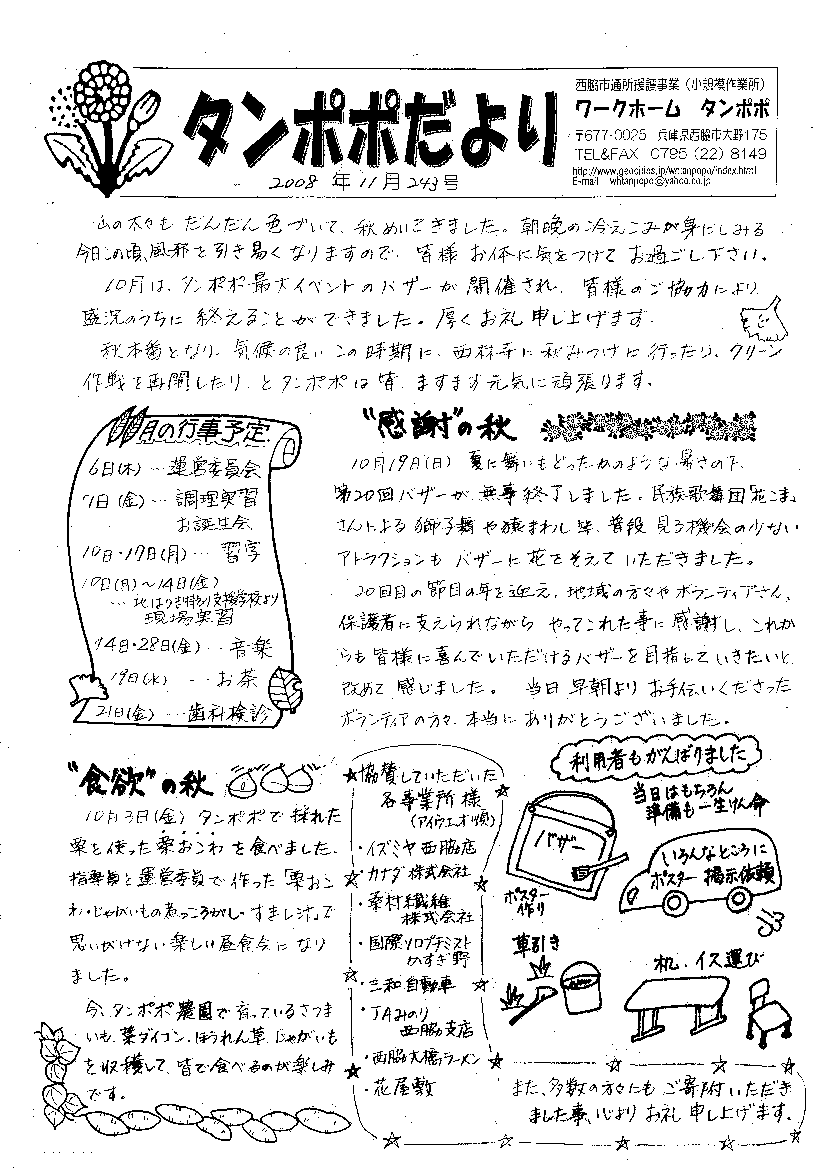 タンポポだより
2008年11月243号
西脇市通所援護事業（小規模作業所）
ワークホーム タンポポ
〒677-0025 兵庫県西脇市大野175
TEL&FAX 0795(22)8149
http://www.geocities.jp/whtanpopo/index.html
E-mail whtanpopo@yahoo.co.jp
山の木々も だんだん色づいて、秋めいてきました。朝晩の冷えこみが身にしみる
今日この頃、風邪を引き易くなりますので、皆様 お体に気をつけて お過ごし下さい。
10月は、タンポポ最大イベントのバザーが開催され、皆様のご協力により
盛況のうちに 終えることができました。厚くお礼申し上げます。
秋本番となり、気候の良いこの時期に、西林寺に秋みつけに行ったり、クリーン
作戦を再開したり、とタンポポは皆、ますます元気に頑張ります。
11月の行事予定
6日(木)…運営委員会
7日(金)…調理実習
お誕生会
10日・17日(月)…習字
10日(月)～14日(金)
…北はりま特別支援学校より
現場実習
14日・28日(金)…音楽
19日(水)…お茶
21日(金)…歯科検診
"感謝"の秋
10月19日(日) 夏に舞いもどったかのような暑さの下、
第20回バザーが、無事終了しました。民族歌舞団「花こま」
さんによる獅子舞や旗まわし等、普段見る機会の少ない
アトラクションも バザーに花をそえていただきました。
20回目の節目の年を迎え、地域の方々やボランティアさん、
保護者に支えられながら やってこれた事に感謝し、これか
らも皆様に喜んでいただけるバザーを目指していきたいと、
改めて感じました。 当日早朝より お手伝いくださった
ボランティアの方々、本当にありがとうございました。
"食欲"の秋
10月3日(金) タンポポで採れた
栗を使った栗おこわを食べました。
指導員と運営委員で作った「栗おこ
わ・じゃがいもの煮っころがし・すまし汁」で
思いがけない楽しい昼食会になり
ました。
今、タンポポ農園で育っているさつま
いも、葉ダイコン、ほうれん草、じゃがいも
を収穫して、皆で食べるのが楽しみ
です。
協賛していただいた
各事業所様
(アイウエオ順)
・イズミヤ西脇店
・カナダ株式会社
・桑村繊維
株式会社
・国際ソロプチミスト
かすぎ野
・三和自動車
・JAみのり
西脇支店
・西脇大橋ラーメン
・花屋敷
利用者もがんばりました
当日はもちろん
準備も一生けん命
バザー
ポスター
作り
いろんなところに
ポスター掲示依頼
草引き
机、イス運び
また、多数の方々にも ご寄附いただき
ました事、心よりお礼申し上げます。